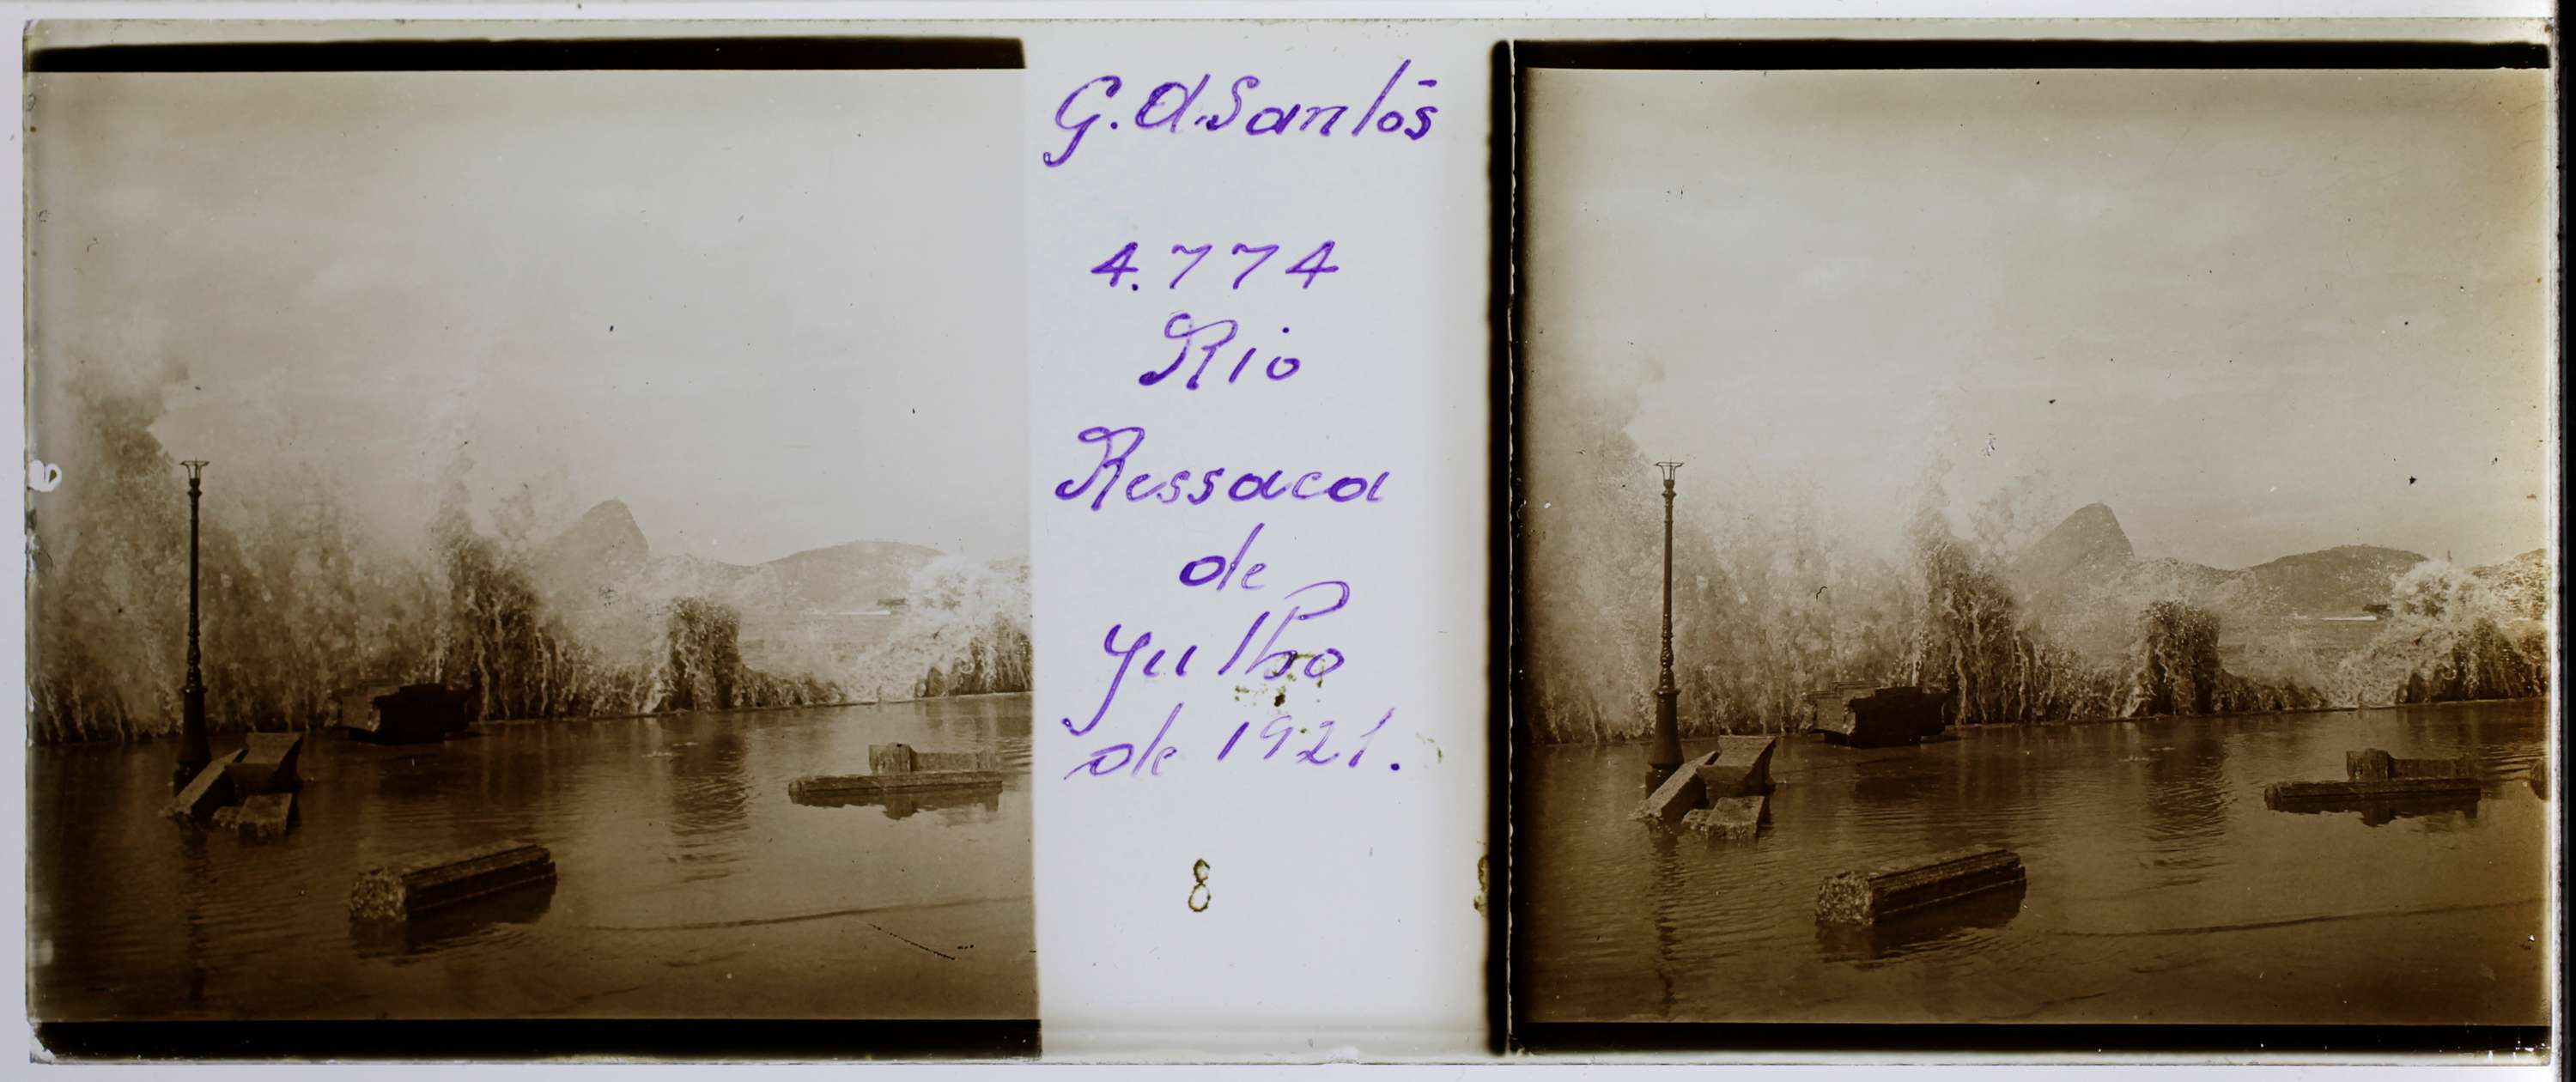 G. A. Santos
4.774
Rio
Ressaca
de
Julho
de 1921.
8